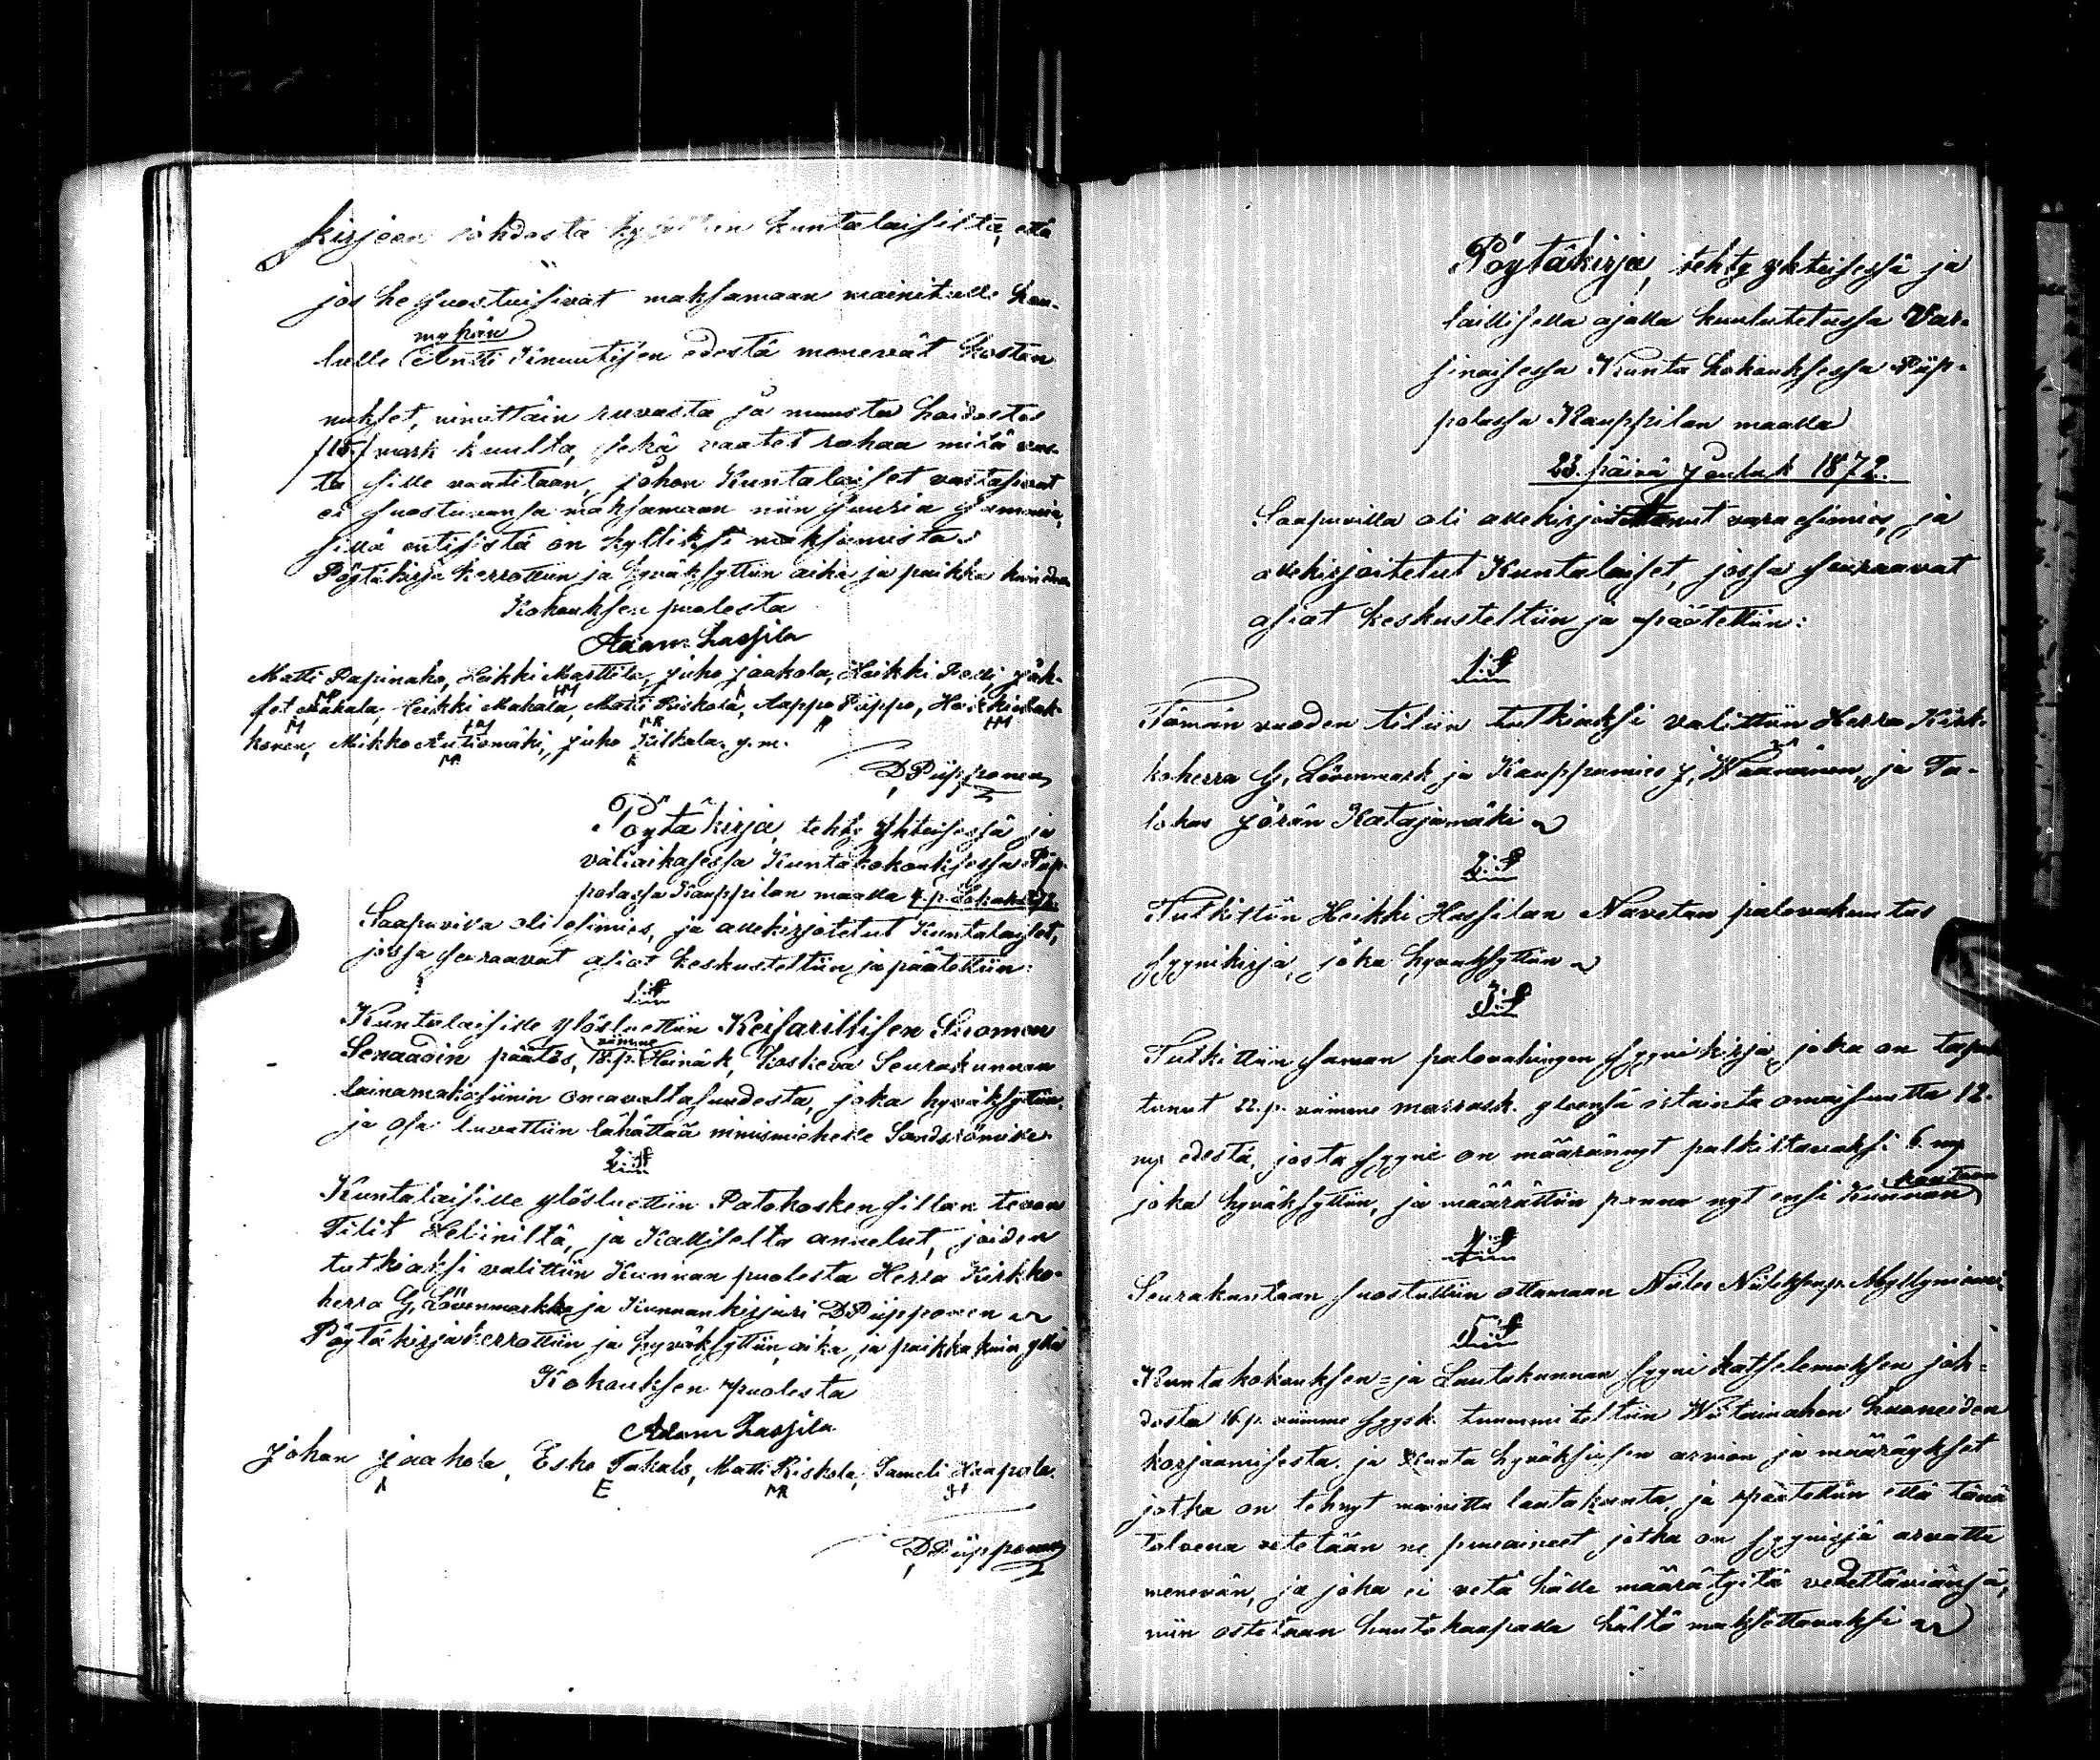 kirjeen johdosta kysyttiin kuntalaisilta, että
jos he suostuisivat maksamaan mainitulle kou-
lulle Antti Kinnutisen edestä menevät kostan
nukset, nimittäin ruvasta ja muusta hoidostas
/15/ mark kuulta, sekä vaatet rahaa mitä vas-
ta sille vaaditaan, johon Kuntalaiset vastasivat
ei suostuvansa maksamaan niin suuria summia,
sillä entisistä on kylliksi maksamista.
Pöytäkirja kerrottiin ja hyväksyttiin aika ja paikka kuin edellä
Kokouksen puolesta
Adam Lassila
Matti Papinaho, Heikki Marttila, Juho Jaakola, Heikki Jäh-
Mahala, Heikki Mahala, Matti Riskola, Aappo Piippo, Heikki
konen, Mikko Autiomäki, Juho Kilkala, y.m.
D. Piipponen
Pöytäkirja, tehty Yhteisessä ja
väliaikasessa Kuntakokouksessa Piip-
polassa Kauppilan maalla 4 p. Lokak. 1872.
Saapuvilla oli esimies, ja allekirjotetut Kuntalaiset,
jossa seuraavat asiat keskusteltiin ja päätettiin:
1:§
Kuntalaisille ylösluettiin Keisarillisen Suomen
Senaadin päätös, 18. p. viimme Heinäk, koskeva Seurakunnan
lainamakasiinin omavaltasuudesta, joka hyväksyttiin,
ja osa luvattiin lähättää nimismiehelle Sandströmille
2:§
Kuntalaisille ylösluettiin Patokosken sillan tevon
Tilit Heliniltä, ja Kalliselta annetut, joiden
tutkiaksi valittiin Kunnan puolesta Herra Kirkko-
herra G. Lövenmarkka ja Kunnankirjuri D. Piipponen
Pöytäkirja kerrottiin ja hyväksyttiin, aika, ja paikka kuin yllä
Kokouksen puolesta
Adam Lassila
Johan Jaakola, Esko Takalo, Matti Riskola, Sameli Haapala
D. Piipponen
Pöytäkirja, tehty yhteisessä ja
laillisella ajalla kuulutetussa Var-
sinaisessa Kunta kokouksessa Piip-
polassa Kauppilan maalla
23. päivä Jouluk 1872.
Saapuvilla oli allekirjoittanut vara esimies, ja
allekirjoitetut Kuntalaiset, jossa seuraavat
asiat keskusteltiin ja päätettiin:
1:§
Tämän vuoden tiliin tutkiaksi valittiin Herra Kirk-
koherra G. Lövenmark, ja Kauppamies J. Wäänänen, ja Ta-
lokas Jöran Katajamäki
2:§
Tutkittiin Heikki Hassilan Navetan palovakuutus
syynikirja, joka hyväksyttiin
3:§
Tutkittiin saman palovahingon syynikirja, joka on tapah
tunut 22. p. viimme marrask. yleensä irtainta omaisuutta 12.
edestä, josta syyni on määrännyt palkittavaksi 6. mp
joka hyväksyttiin, ja määrättiin panna nyt ensi Kunnan kantoon
4:§
Seurakuntaan suostuttiin ottamaan Niiles Niilekseup. Myllyniemi
5:§
Kuntakokouksen- ja Lautakunnan syyni katselemuksen joh-
dosta 16. p. viimme syysk. tuummiteltiin Witainahon huoneiden
korjaamisesta, ja Kunta hyväksyisen arvion ja määräykset
jotka on tehnyt mainittu lautakunta, ja päätettiin että tänä
talvena vetetään ne puuaineet jotka on syynissä arvattu
menevän, ja joka ei vetä hälle määrätyitä vedettäviänsä,
niin ostetaan huutokaupalla hältä maksettavaksi